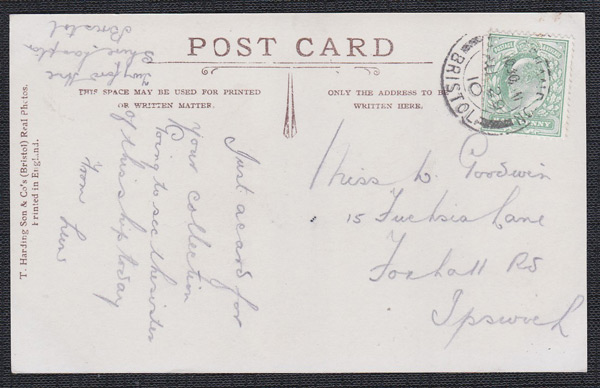 POST CARD
THIS SPACE MAY BE USED FOR PRINTED
OR WRITTEN MATTER.
ONLY THE ADDRESS TO BE
WRITTEN HERE.
T. Harding Son & Co's (Bristol) Real Photos.
Printed in England.
BRISTOL
10
PENNY
Bristol
Just a card for
your collection
Going to see the sister
of this ship today
From
Miss D. Goodwin
15 Fuchsia Lane
Foxhall Rd
Ipswich